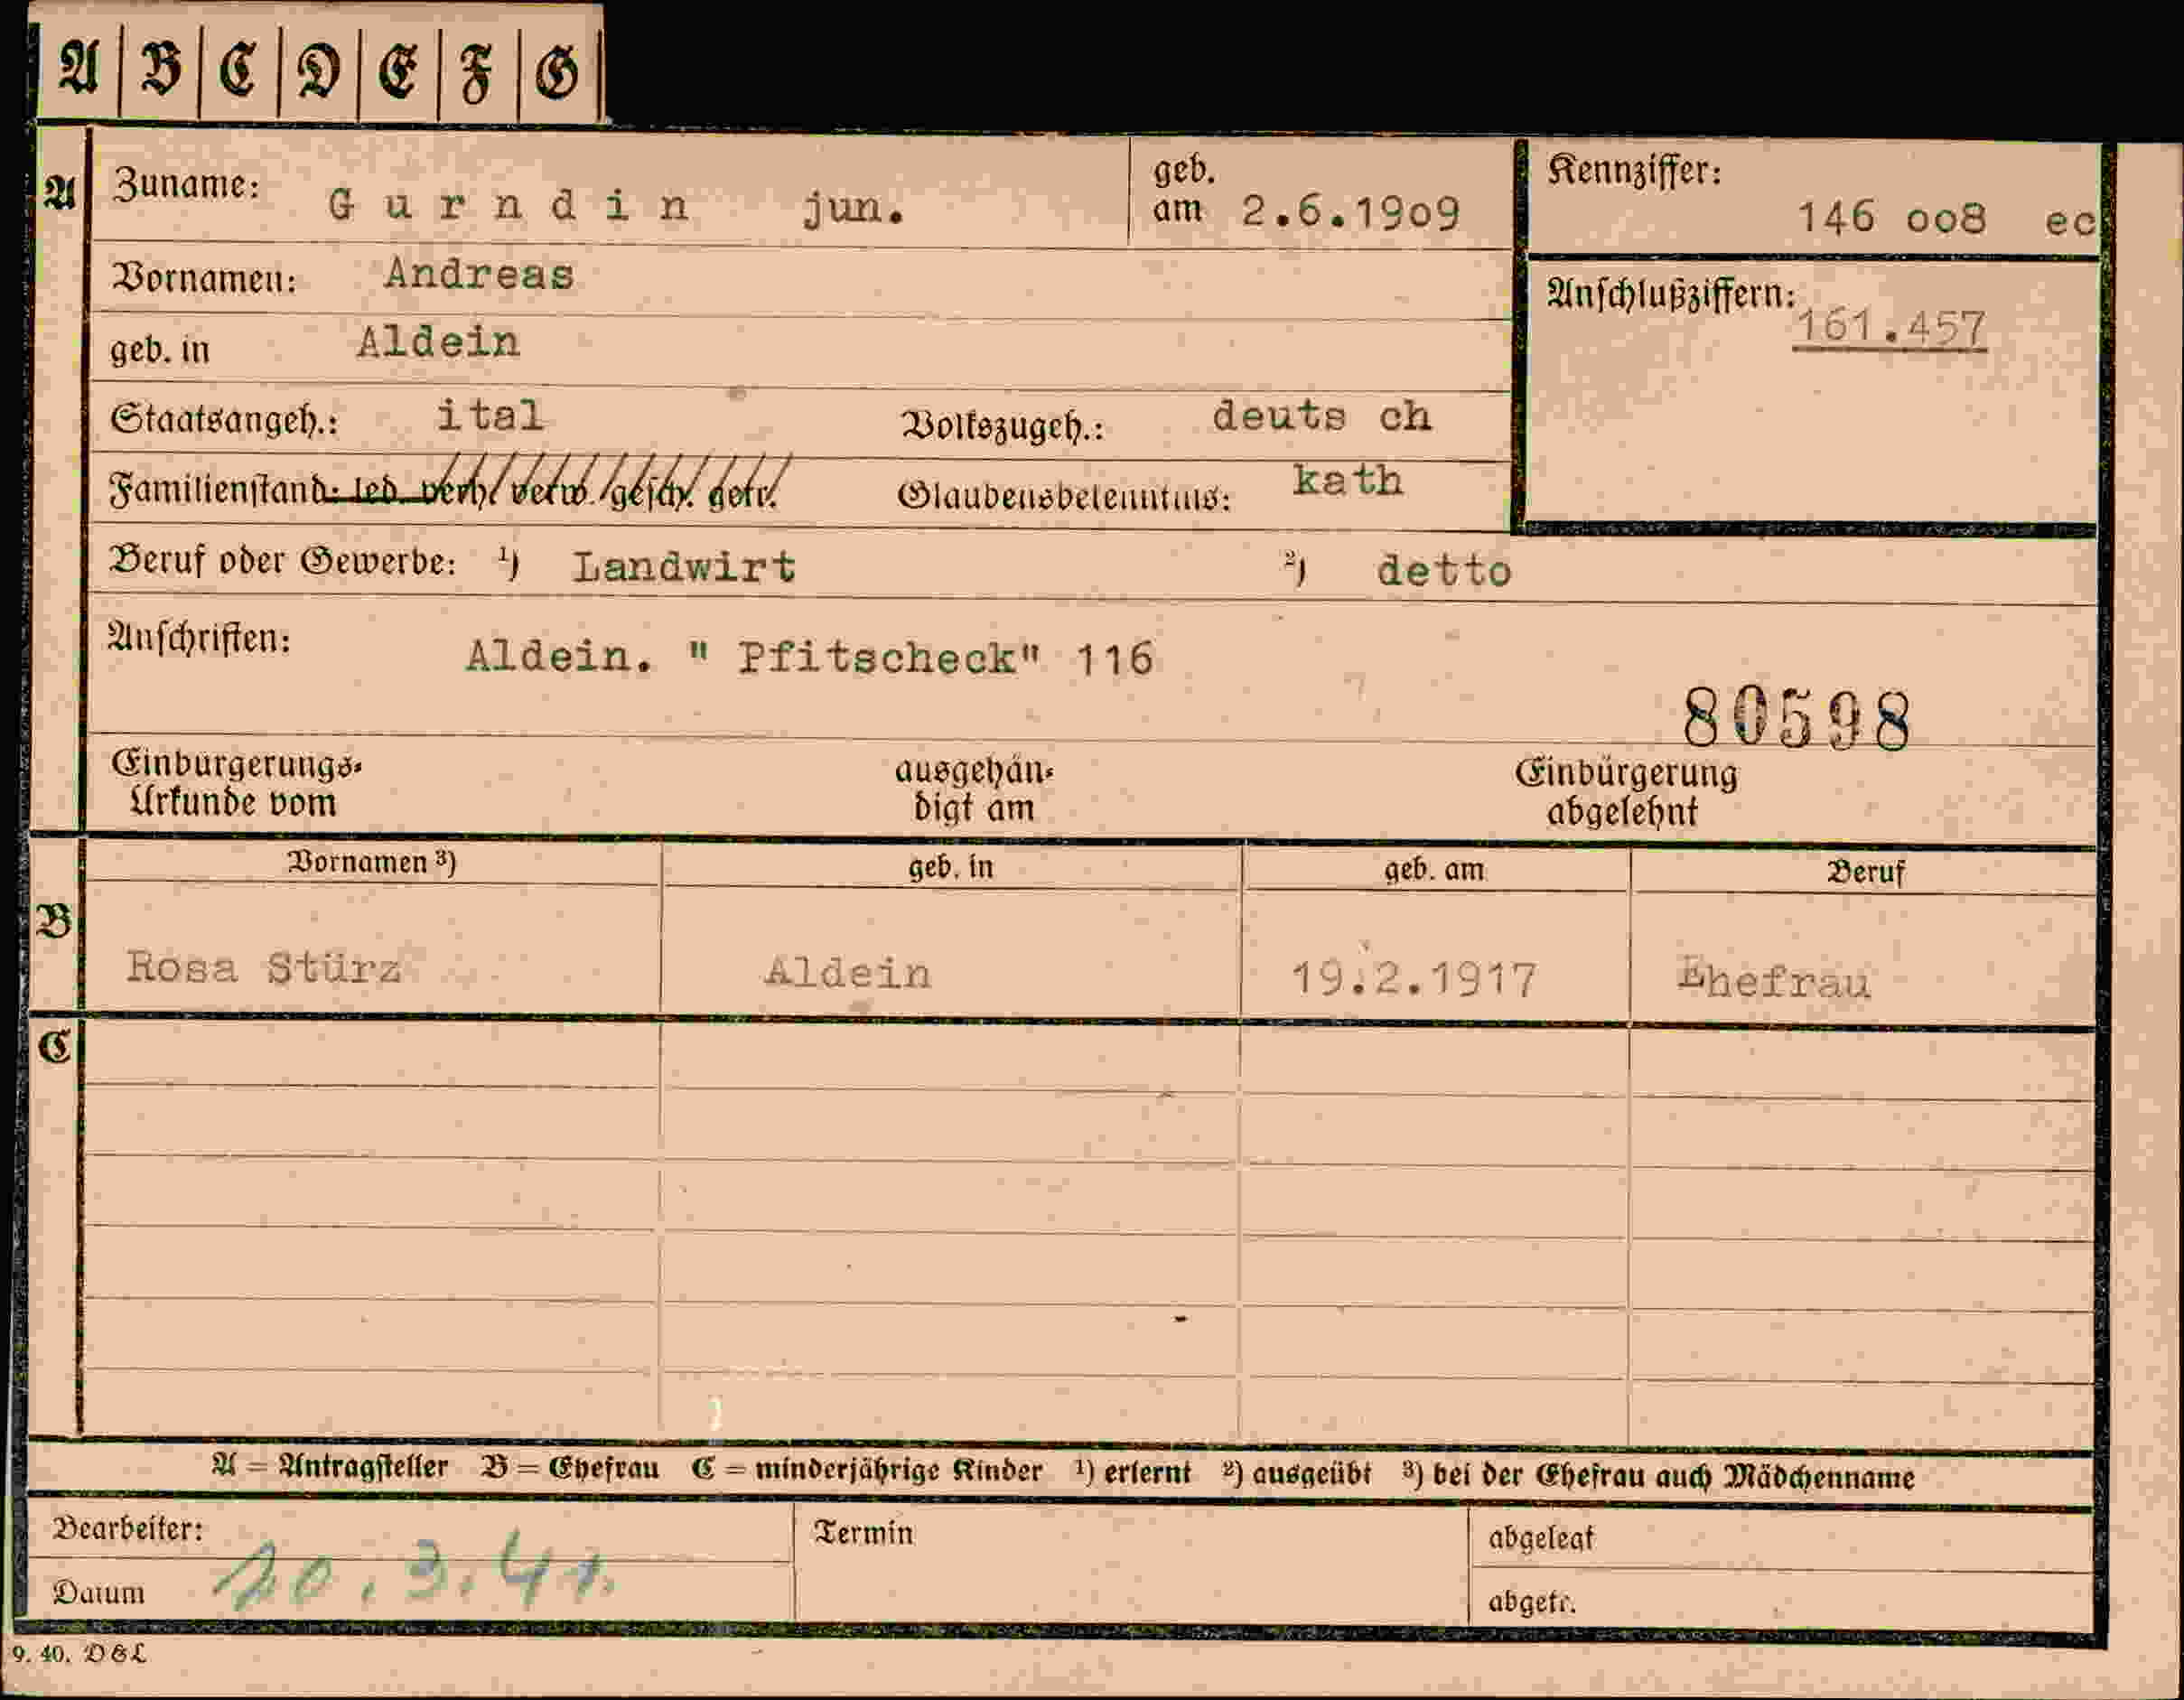 A B C D E F G
A Zuname: Gurndin jun. geb. am 2.6.19o9 Kennziffer: 146 oo8 ec
Vornamen: Andreas Anschlußziffern: 161.457
geb. in Aldein
Staatsangeh.: ital Volkszugeh.: deuts ch
Familienstand: led. verh. verw. gesch. getr. Glaubensbekenntnis: kath
Beruf oder Gewerbe: 1) Landwirt 2) detto
Anschriften: Aldein. " Pfitscheck" 116
80598
Einbürgerungs-Urkunde vom ausgehändigt am Einbürgerung abgelehnt
Vornamen 3) geb. in geb. am Beruf
B Rosa Stürz Aldein 19.2.1917 Ehefrau
C
A = Antragsteller B = Ehefrau C = minderjährige Kinder 1) erlernt 2) ausgeübt 3) bei der Ehefrau auch Mädchenname
Bearbeiter: Termin abgelegt
Datum 20.3.41. abgetr.
9. 40. D&L